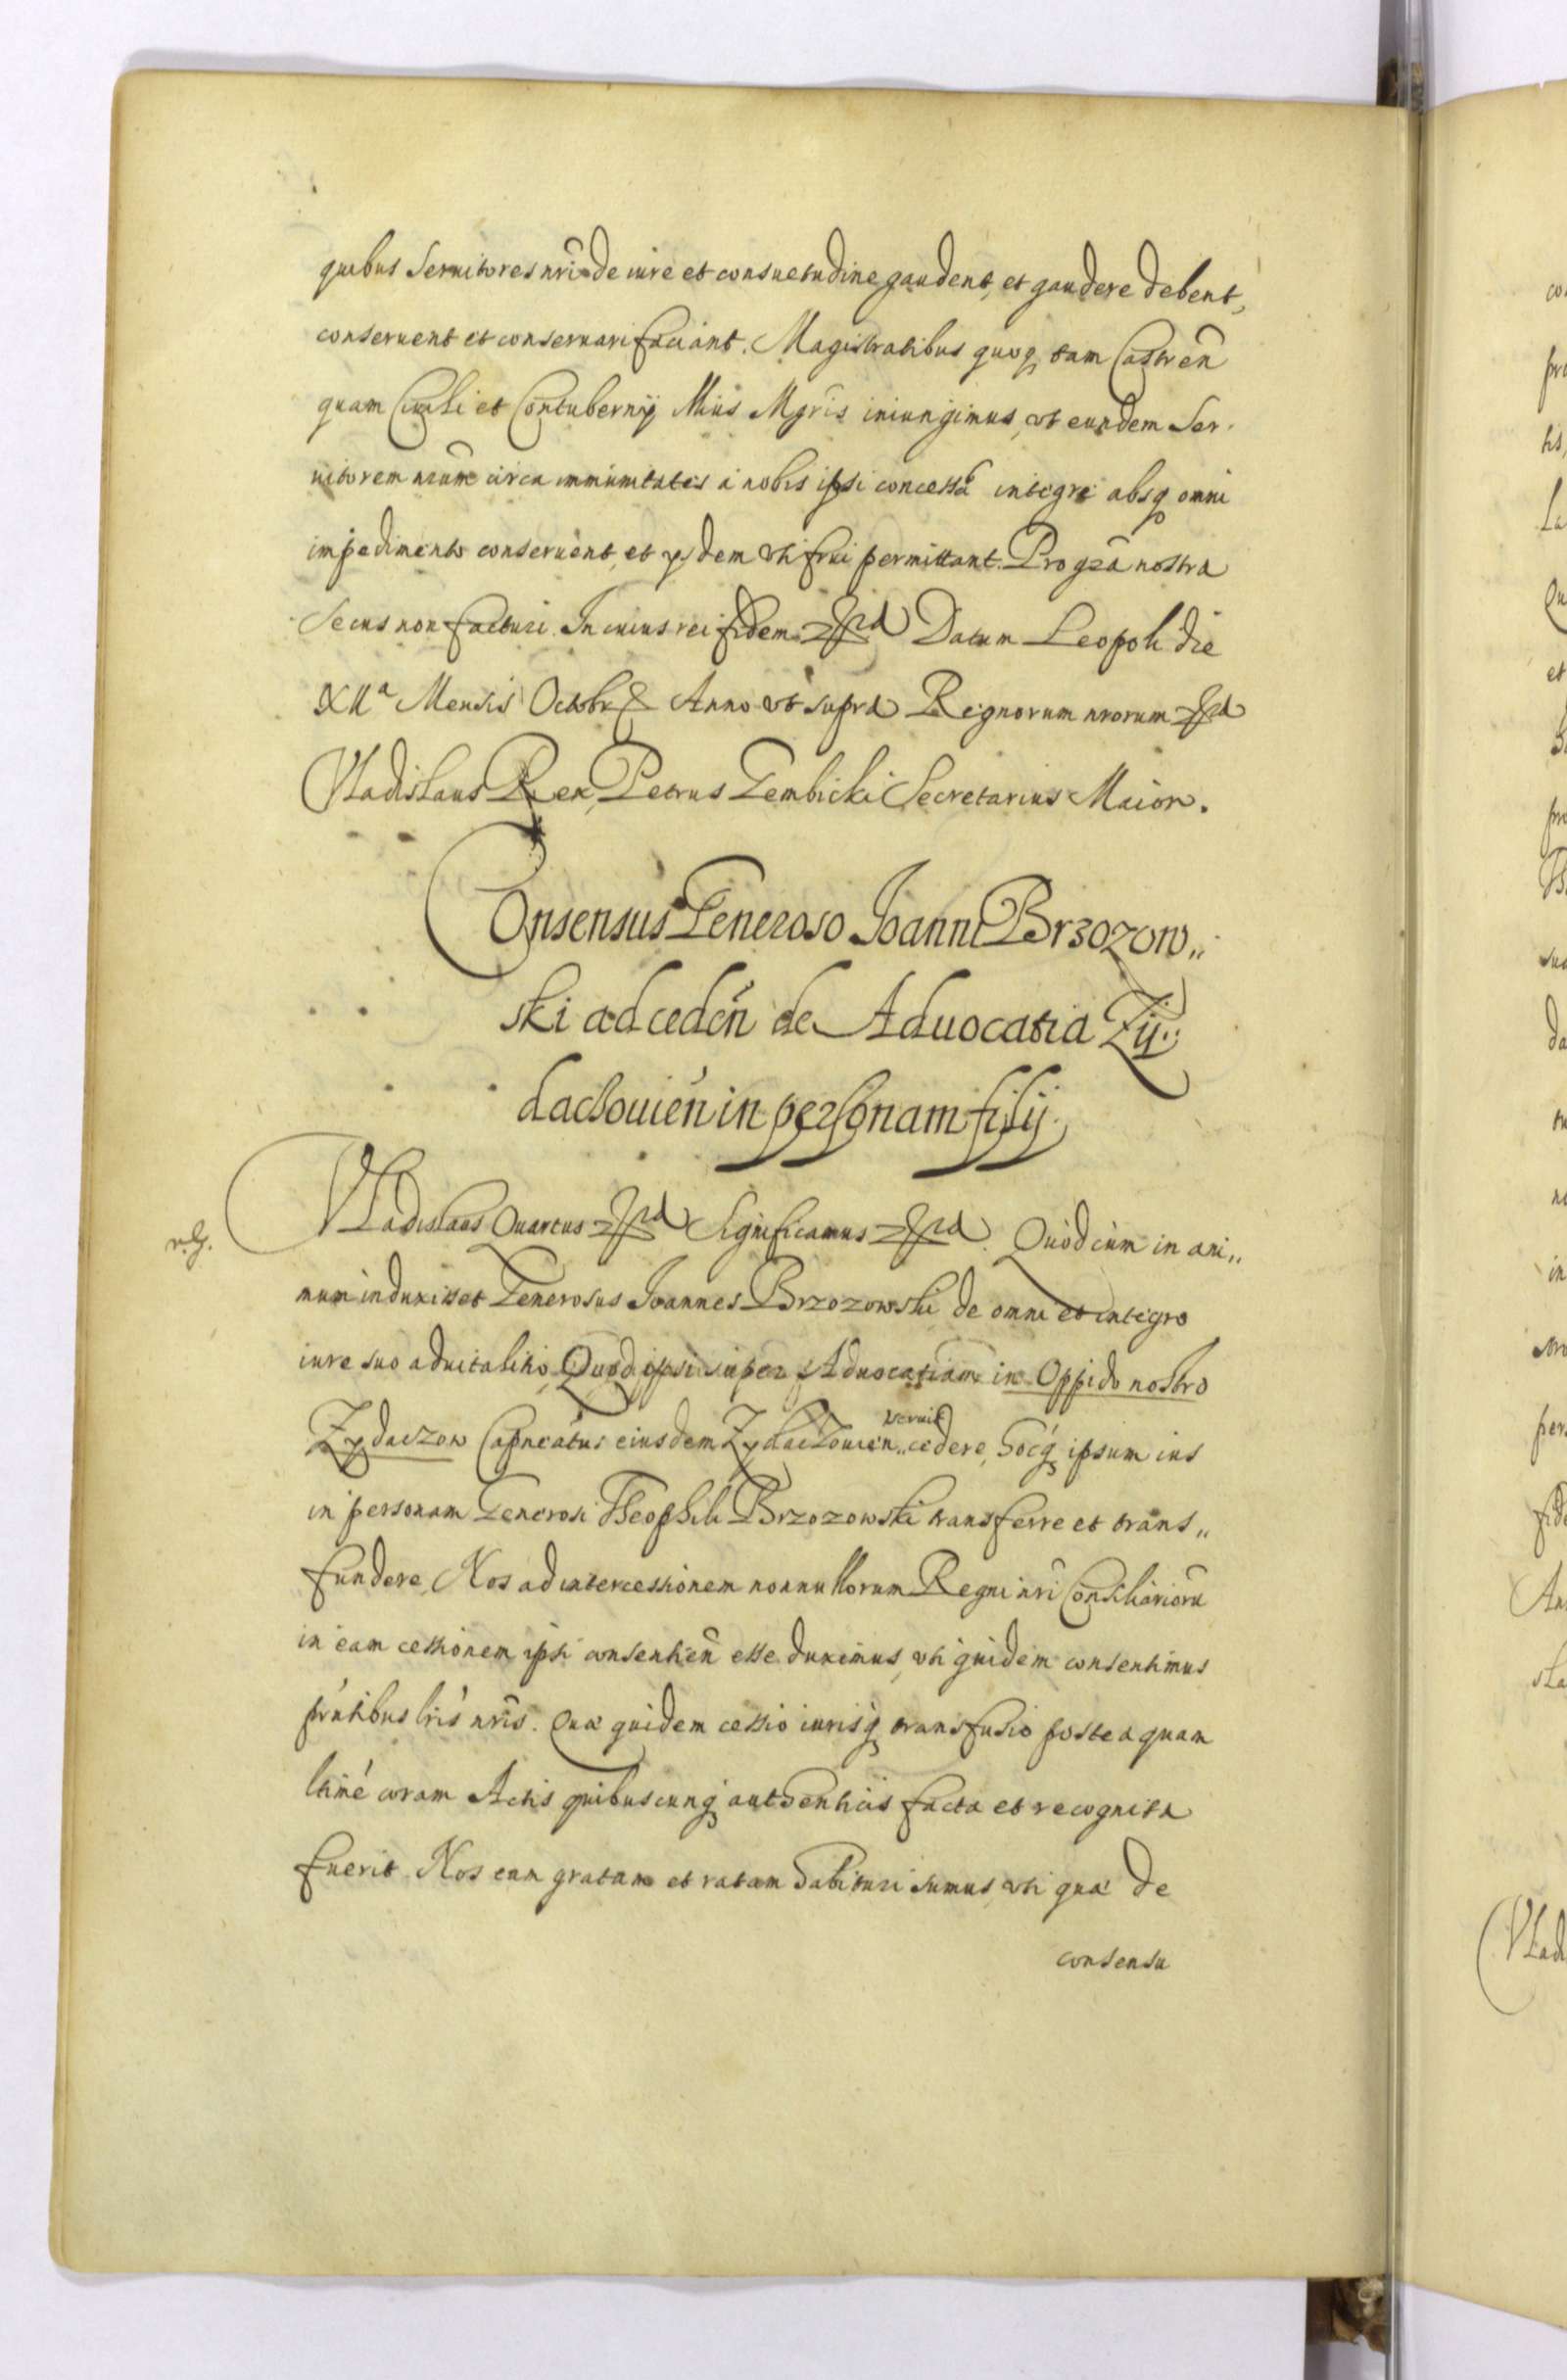 quibus Seruitores nri de iure et consuetudine gaudent, et gaudere debent,
conseruent et conseruari faciant. Magistratibus quoq tam Castren̄
quam Ciuili et Contubernij Illius Mgris iniungimus, vt eundem Ser-
uitorem nrum circa immunitates a nobis ipsi concessas integre absq omni
impedimento conseruent, et ysdem vti frui permittant. Pro gra nostra
Secus non facturi. In cuius rei fidem Datum Leopoli die
XIIa Mensis Octobr Anno vt supra Regnorum nrorum
Vladislaus Rex, Petrus Gembicki Secretarius Maior.
Consensus Generoso Joanni Brzozow„
ski ad ceden̄ de Aduocatia Zÿ„
dachouien̄ in personam filij.
Vladislaus Quartus Significamus Quod cum in ani„
mum induxisset Generosus Joannes Brzozowski de omni et integro
iure suo aduitalitio, Quod ipsi super Aduocatiam in Oppido nostro
Zydaczow Capneatus eiusdem Zydaczouien̄ seruit cedere, hocq ipsum ius
in personam Generosi Theophili Brzozowski transferre et trans„
fundere, Nos ad intercessionem nonnullorum Regni nri Consiliarioru
in eam cessionem ipsi consentien̄ esse duximus, vti quidem consentimus
prntibus lris nris. Qua quidem cessio iurisq transfusio postea quam
ltime coram Actis quibuscunq authenticis facta et recognita
fuerit. Nos eam gratam et ratam habituri sumus, vti qua de
consensu